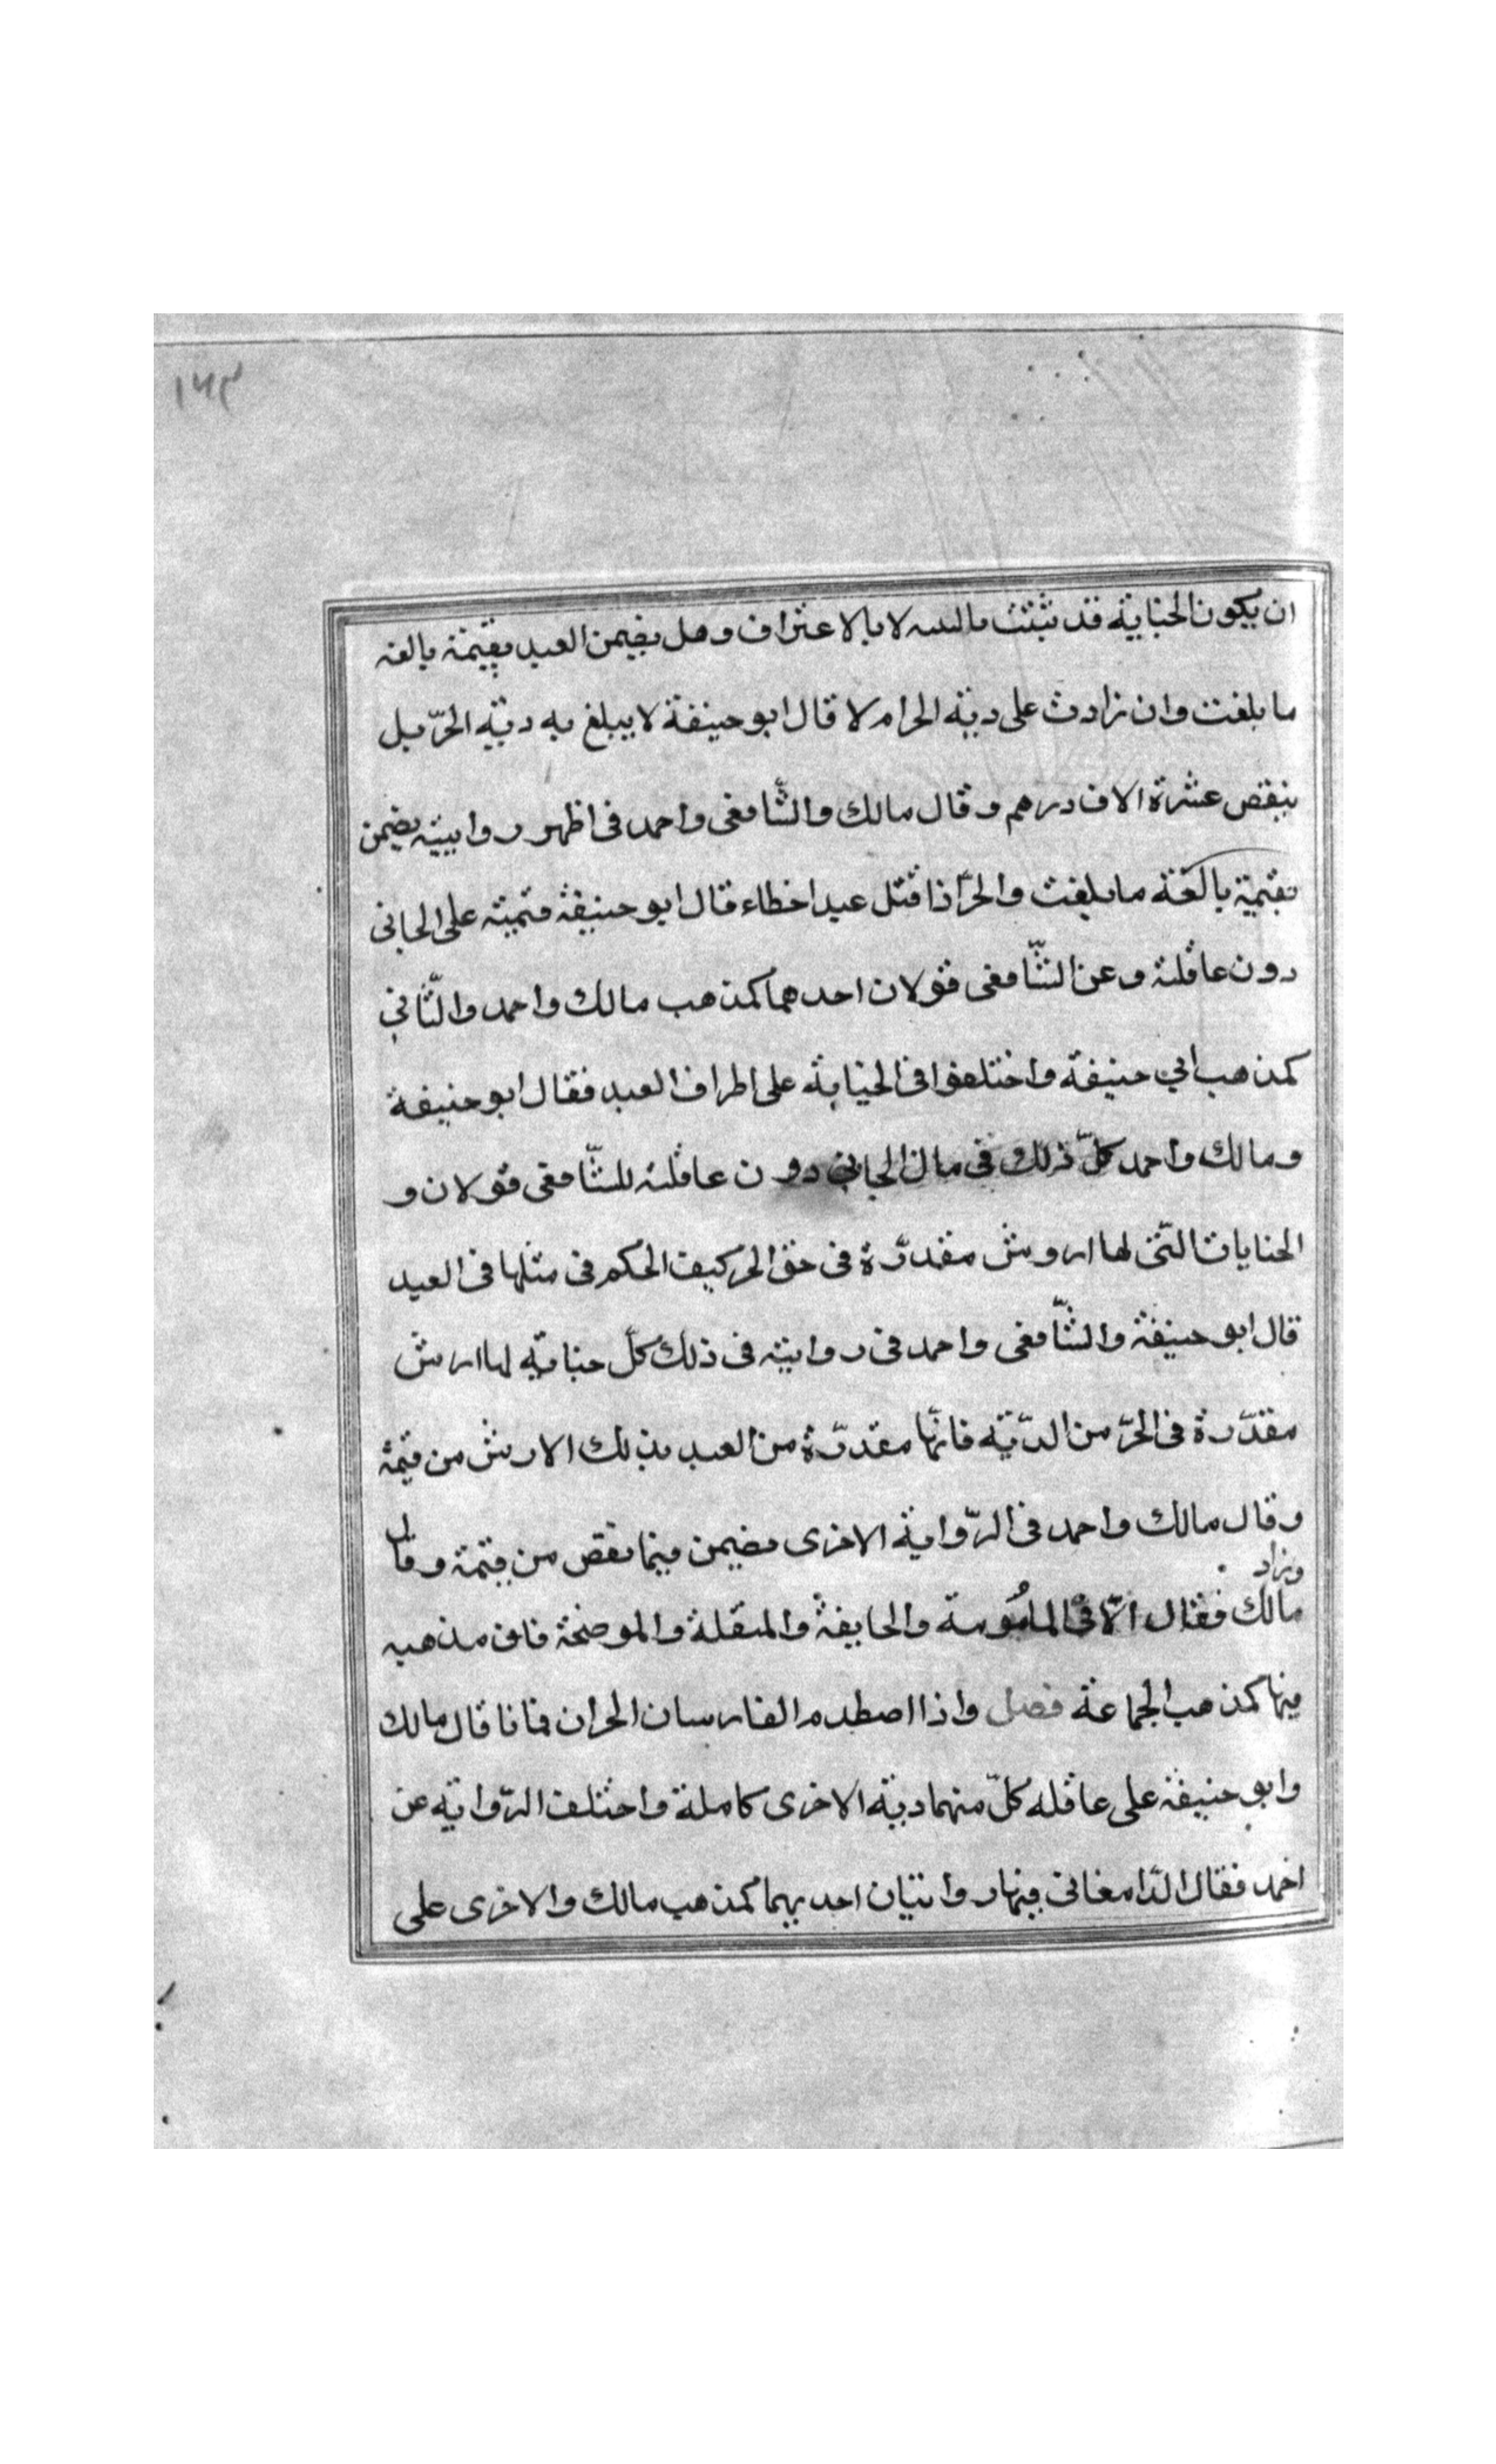 ١٦٣
ان يكون الجناية قد ثبتت بالبينه لا بالاعتراف وهل يضمن العبد بقيمته بالغه
ما بلغت وان زادت على دية الحرام لا قال ابو حنيفة لا يبلغ به دية الحرّ بل
ينقص عشرة الاف درهم وقال مالك والشّافعى واحمد فى اظهر روايتيه يضمن
بقيمة بالغة ما بلغت والحرّ اذا قتل عبدا خطاء قال ابو حنيفة قيمته على الجانى
دون عاقلته وعن الشّافعى قولان احدهما كمذهب مالك واحمد والثّاني
كمذهب ابي حنيفة واختلفوا فى الجناية على اطراف العبد فقال ابو حنيفة
ومالك واحمد كلّ ذلك فى مال الجاني دون عاقلته للشّافعى قولان و
الجنايات الّتى لها اروش مقدّرة فى حق الحر كيف الحكم فى مثلها فى العبد
قال ابو حنيفة والشّافعى واحمد فى روايته فى ذلك كلّ جناية لها ارش
مقدّرة فى الحرّ من الدّية فانّها مقدّرة من العبد بذلك الارش من قيمة
وقال مالك واحمد فى الرّواية الاخرى يضمن فيما نقص من قيمة وقال
وزاد
مالك فقال الّا فى المامُومة والجايفة والمنقلة والموضحة فان مذهبه
فيها كمذهب الجماعة فصل واذا اصطدم الفارسان الحران فماتا قال مالك
وابو حنيفة على عاقله كلّ منهما دية الاخرى كاملة واختلف الرّواية عن
احمد فقال الدّامغانى فيها روايتان احديهما كمذهب مالك والاخرى على